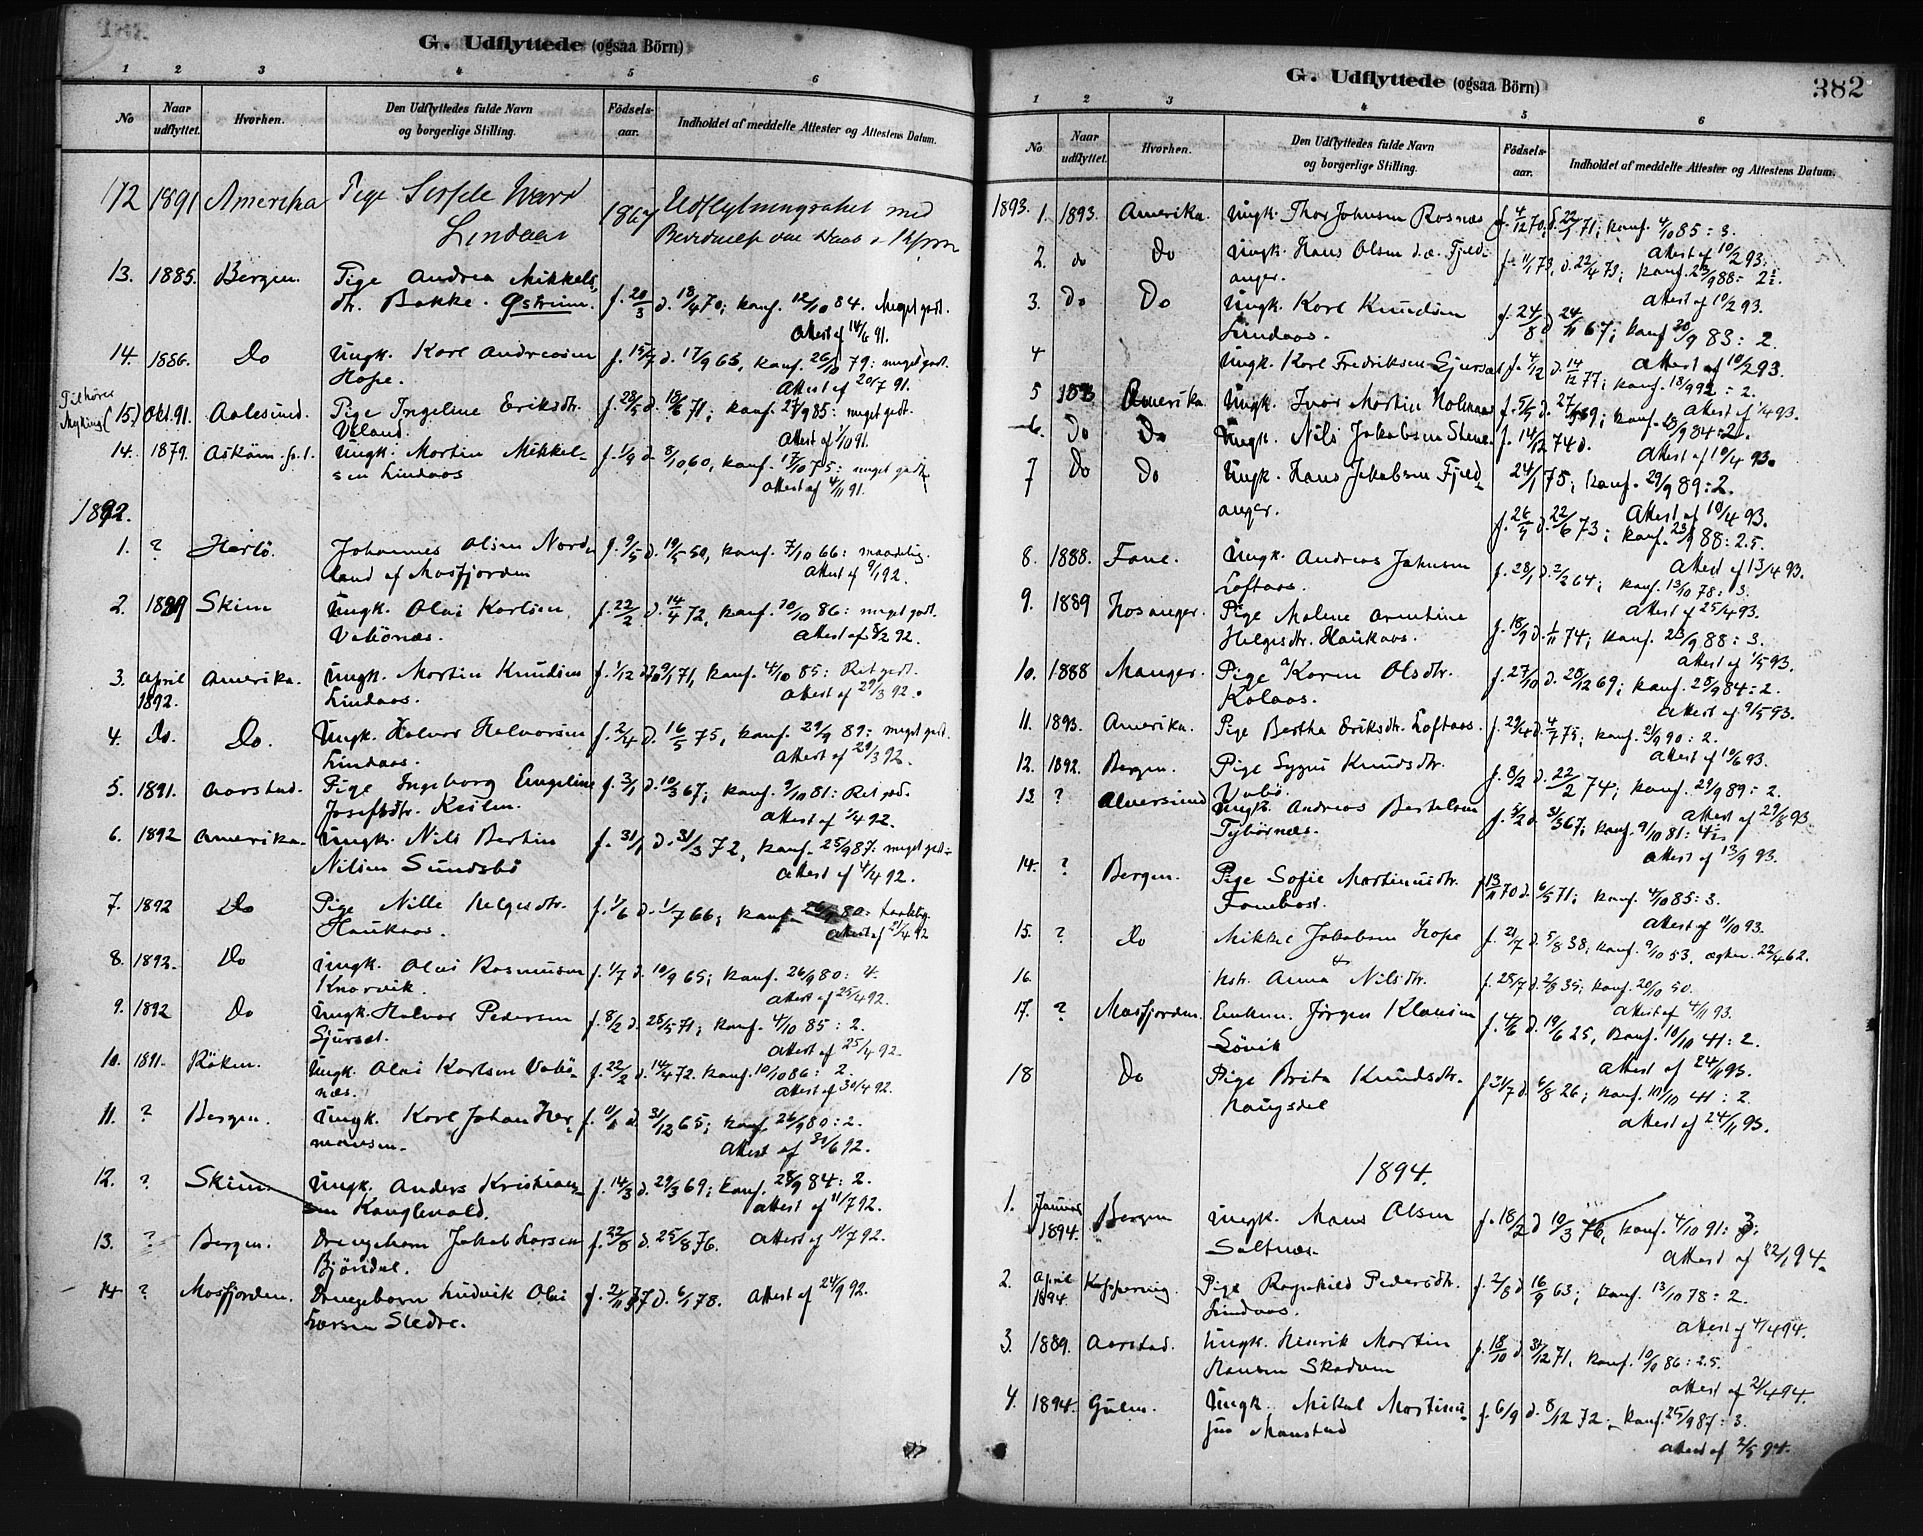 G. Udflyttede (ogsaa Börn)
1 2 3 4 5 6
No
Naar udflyttet.
Hvorhen.
Den Udflyttedes fulde Navn og borgerlige Stilling.
Födsels-aar.
Indholdet af meddelte Attester og Attestens Datum.
12 1891 Amerika Pige
Lindaas 1867 Udflytningsattest med
13. 1885. Bergen. Pige Andrea Mikkels-
dtr. Bakke. Østrem. f. 20/3 d. 18/4 70; konf. 12/10 84. Meget godt.
Attest af 14/6 91.
14. 1886. Do Ungk. Karl Andreasen
Hope. f. 15/7 d. 17/9 65, konf. 26/10 79: meget godt.
Attest af 20/7 91.
Tilhører
Mykings (15.) Okt. 91. Aalesund. Pige Ingeline Eriksdtr.
Veland. f. 28/5 d. 18/6 71; konf. 27/9 85: meget godt.
Attest af 1/10 91.
14. 1879. Askøen Ungk. Martin Mikkel-
sen Lindaas f. 1/9 d. 8/10 60, konf. 17/10 75: meget godt
Attest af 4/11 91.
1892.
1. ? Herlö. Johannes Olsen Nord-
land af Masfjorden f. 9/5 d. 19/5 50, konf. 7/10 66: maadelig.
Attest af 9/1 92.
2. 1889 Skien Ungk. Olai Karlsen
Vabönæs. f. 22/2 d. 14/4 72, konf. 10/10 86: meget godt.
Attest af 8/2 92.
3. April
1892. Amerika. Ungk. Martin Knudsen
Lindaas. f. 1/12 70 d. 9/1 71, konf. 4/10 85: Ret godt.
Attest af 29/3 92.
4. Do. Do. Ungk. Halvor Halvorsen
Lindaas. f. 2/4 d. 16/5 75, konf. 29/9 89: meget godt.
Attest af 29/3 92.
5. 1891. Aarstad. Pige Ingeborg Engeline
Josefsdtr. Keilen. f. 3/1 d. 10/3 67; konf. 9/10 81: Ret god.
Attest af 1/4 92.
6. 1892 Amerika. Ungk. Nils Bertin
Nilsen Sundsbö f. 31/1 d. 31/3 72, konf. 25/9 87: meget godt.
Attest af 4/4 92.
7. 1892 Do Pige Nille Helgesdtr.
Haukaas. f. 1/6 d. 1/7 66; konf. 26/9 80:
Attest af 21/4 92
8. 1892. Do Ungk. Olai Rasmusen
Knarvik. f. 1/7 d. 10/9 65; konf. 26/9 80: 4.
Attest af 25/4 92.
9. 1892 Do Ungk. Halvor Pedersen
Sjurset. f. 8/2 d. 28/5 71; konf. 4/10 85: 2.
Attest af 25/4 92.
10. 1891. Röken. Ungk. Olai Karlsen Vabö-
næs. f. 22/2 d. 14/4 72. konf. 10/10 86: 2.
Attest af 30/4 92.
11. ? Bergen. Ungk. Karl Johan Her-
mansen. d. 31/12 65; konf. 26/9 80: 2.
Attest af 30/6 92.
12. ? Skien. Ungk. Anders Kristian-
sen Kanglevold. f. 14/3 d. 29/3 69; konf. 28/9 84: 2.
Attest af 11/7 92.
13. ? Bergen. Drengebarn Jakob Larsen
Bjöndal. f. 22/8 d. 25/8 76. Attest af 11/7 92.
14 ? Masfjorden. Drengebarn Ludvik Olai
Larsen Sledre. f. 2/11 77 d. 6/1 78. Attest af 24/9 92.
382
G. Udflyttede (ogsaa Börn)
1 2 3 4 5 6
No
Naar udflyttet.
Hvorhen.
Den Udflyttedes fulde Navn og borgerlige Stilling.
Födsels-aar.
Indholdet af meddelte Attester og Attestens Datum.
1893. 1. 1893. Amerika. Ungk. Thor Johnsen Rosnæs f. 4/12 70, d. 22/1 71; konf. 4/10 85: 3.
Attest af 10/2 93.
2. do Do Ungk. Hans Olsen d.æ. Fjeld-
anger. f. 11/1 73, d. 22/4 73; konf. 23/9 88: 2½.
Attest af 10/2 93.
3. Do Do Ungk. Karl Knudsen
Lindaas. f. 24/8 d. 24/11 67; konf. 30/9 83: 2.
Attest af 10/2 93.
4 Ungk. Karl Fredriksen Sjurset f. 4/12 d. 14/12 77; konf. 18/9 92: 2.
Attest af 1/4 93.
5 1893 Amerika. Ungk. Ivar Martin Holmaas f. 5/5 d. 27/5 69; konf. 28/9 84: 2.
Attest af 10/4 93.
6. Do Do Ungk. Nils Jakobsen Stene f. 14/12 74 d.
24/1 75; konf. 29/9 89: 2.
Attest af 10/4 93.
7 Do Do Ungk. Hans Jakobsen Fjeld-
anger. f. 26/5 d. 22/6 73; konf. 23/9 88: 2.5.
Attest af 13/4 93.
8. 1888. Fane. Ungk. Andreas Johnsen
Loftaas. f. 28/1 d. 2/2 64; konf. 13/10 78: 3.
Attest af 25/4 93.
9. 1889 Hosanger. Pige Malene Arentine
Helgesdtr. Haukaas. f. 18/9 d. 1/11 74; konf. 23/9 88: 3.
Attest af 1/5 93.
10. 1888 Manger. Pige Karen Olsdtr.
Kolaas. f. 27/10 d. 28/12 69; konf. 28/9 84: 2.
Attest af 9/5 93.
11. 1893. Amerika. Pige Bertha Eriksdtr. Loftaas. f. 29/4 d. 4/7 75; konf. 21/9 90: 2.
Attest af 10/6 93.
12. 1892. Bergen. Pige Sygni Knudsdtr.
Vabö. f. 8/2 d. 22/2 74; konf. 29/9 89: 2.
Attest af 29/8 93
13. ? Alversund Ungk. Andreas Bertelsen
Tybörnæs. f. 5/2 d. 31/3 67; konf. 9/10 81: 4½.
Attest af 13/9 93.
14. ? Bergen. Pige Sofie Martinusdtr.
Fanebost. f. 13/2 70 d. 6/5 71; konf. 4/10 85: 3.
Attest af 11/10 93.
15. ? Do Mikkel Jakobsen Hope f. 21/7 d. 5/8 38; konf. 9/10 53, ægtev. 22/4 62.
16. Hstr. Anna Nilsdtr. f. 25/7 d. 2/8 35; konf. 20/10 50.
Attest af 4/11 93.
17. ? Masfjorden. Enkem. Jörgen Klausen
Lövik f. 4/6 d. 19/6 25, konf. 10/10 41: 2.
Attest af 24/11 93.
18 Do Pige Brita Knudsdtr.
Haugsdal f. 31/7 d. 6/8 26; konf. 10/10 41: 2.
Attest af 24/11 93.
1894.
1. Januar
1894. Bergen Ungk. Mons Olsen
Saltnæs. f. 18/2 d. 19/3 76, konf. 4/10 91: 3.
Attest af 22/1 94.
2. April
1894. Pige Ragnhild Pedersdtr.
Lindaas. f. 2/8 d. 16/9 63; konf. 13/10 78: 2.
Attest af 4/4 94.
3. 1889. Aarstad. Ungk. Henrik Martin
Hansen Skodven f. 18/10 d. 31/12 71, konf. 10/10 86: 2.5.
Attest af 21/4 94.
4. 1894. Gulen. Ungk. Mikal Martinu-
sen Monstad f. 6/9 d. 8/12 72, konf. 25/9 87: 3.
Attest af 2/5 94.